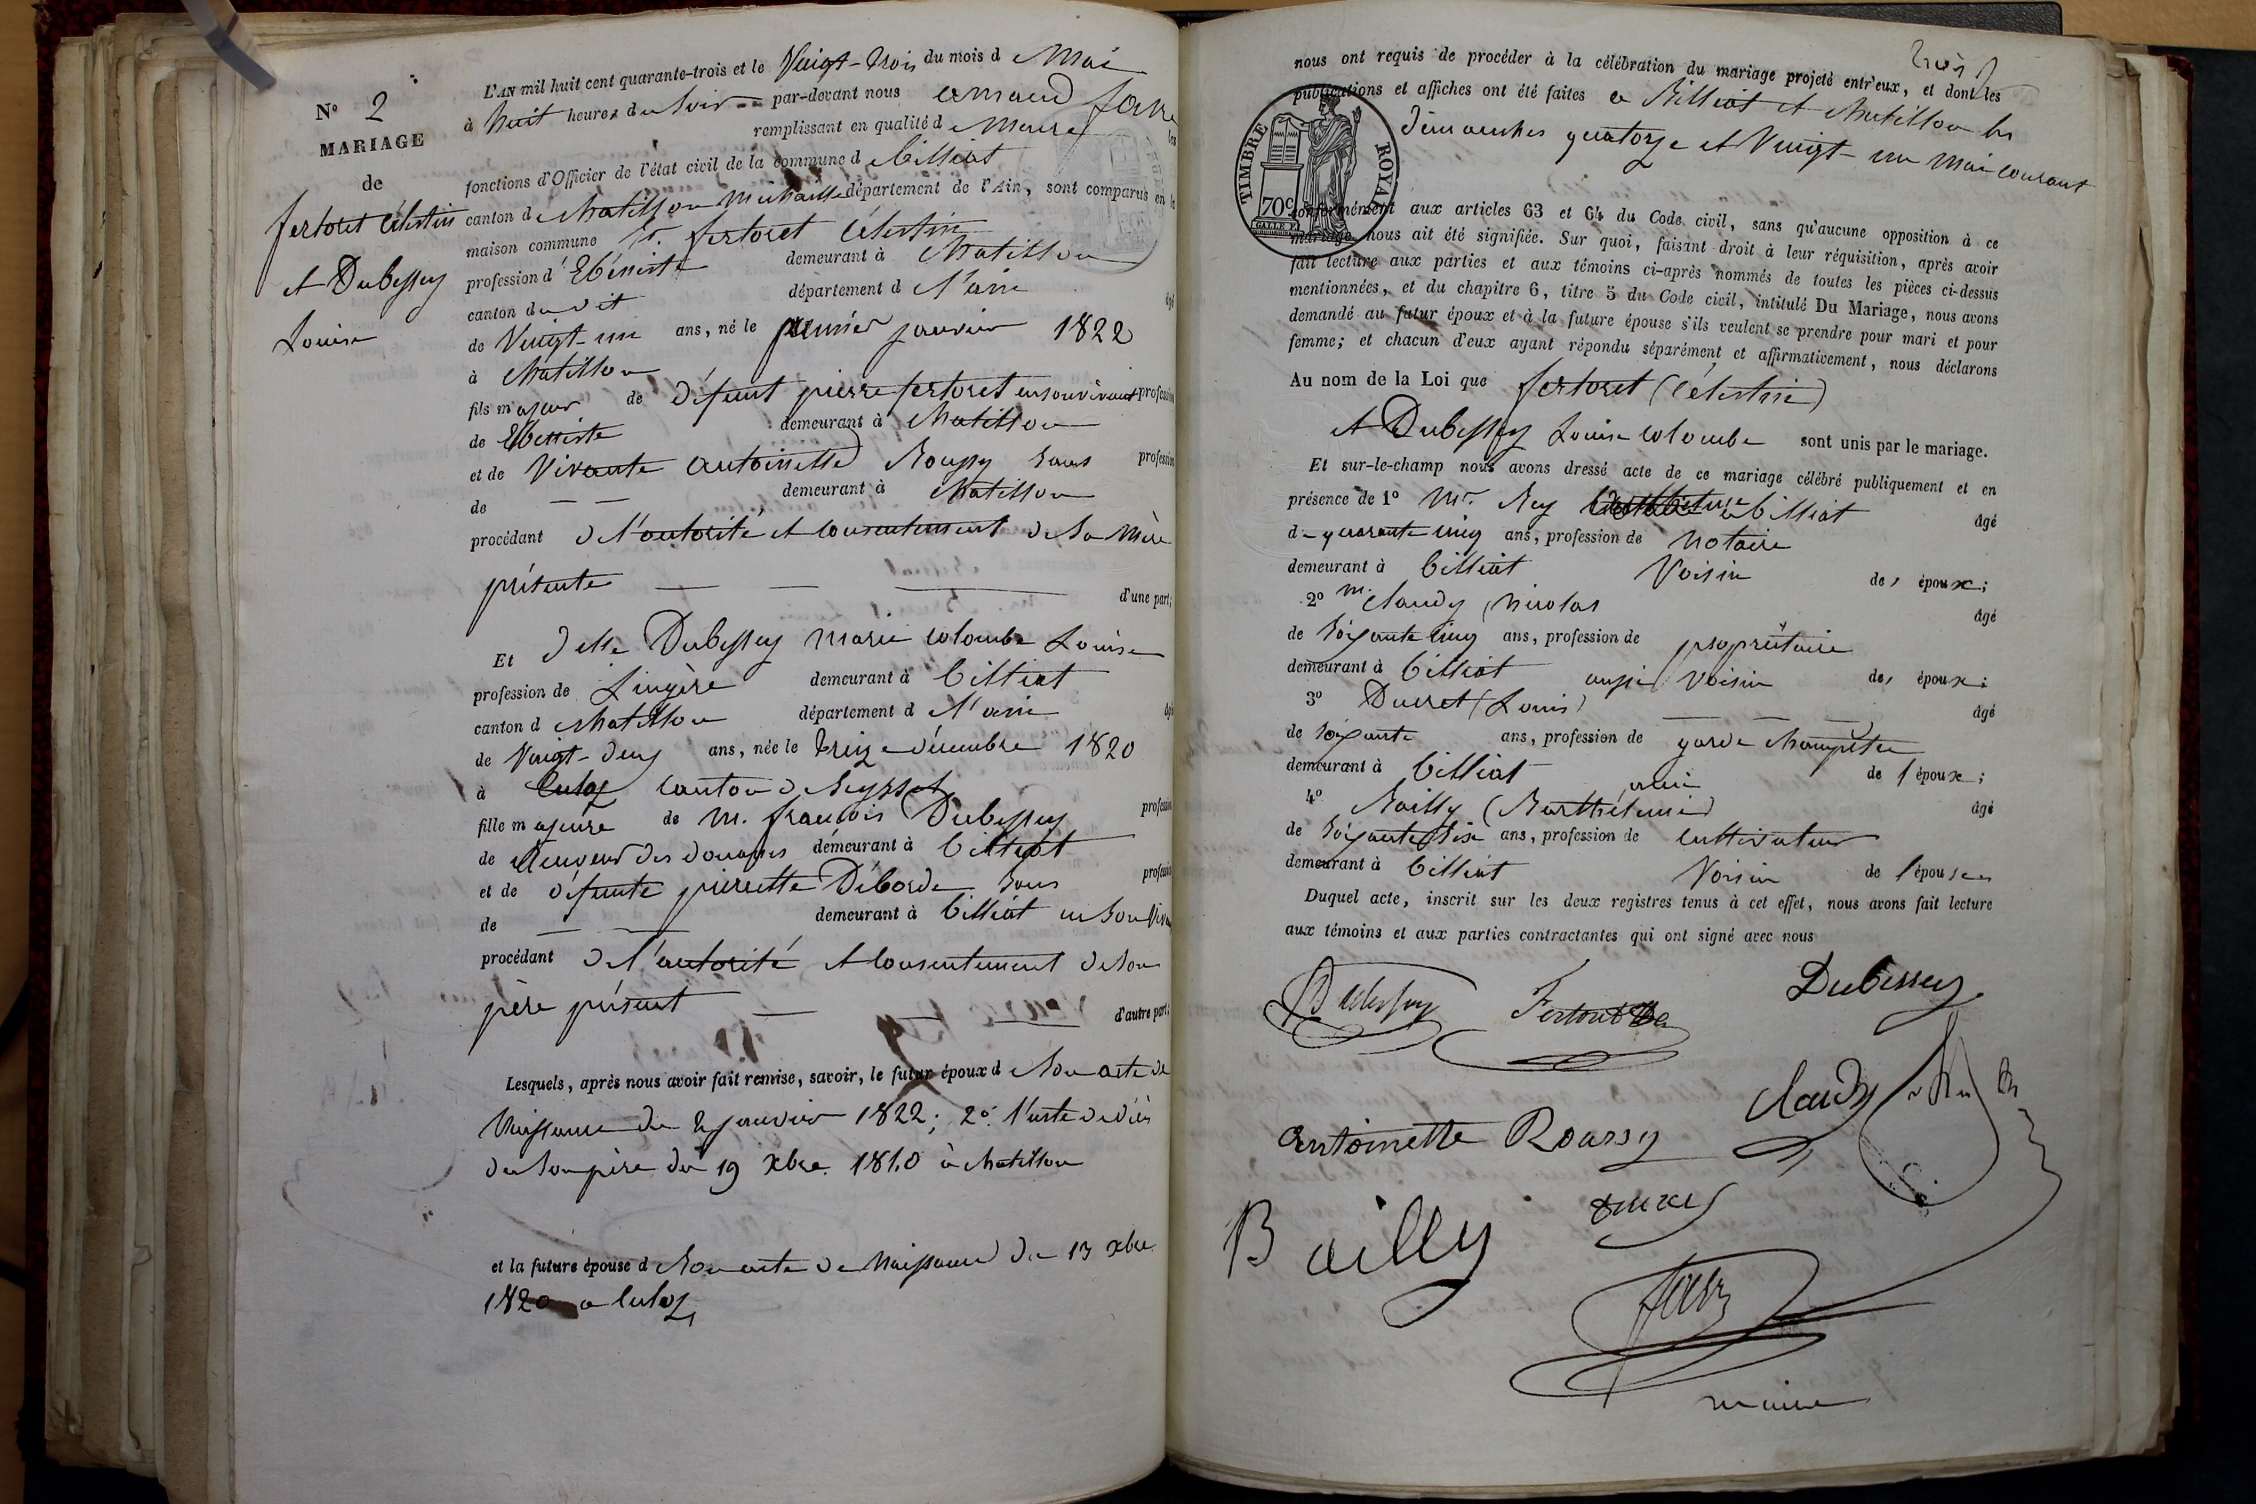 N° 2
MARIAGE
de
fertoret Célestin
et Dubessey
Louise
L'AN mil huit cent quarante-trois et le Vingt-trois du mois d Mai
à huit heures du Soir par-devant nous armand favre
remplissant en qualité d Maire les
fonctions d'Officier de l'état civil de la commune d Billiat
canton de Chatillon Michaille département de l'Ain, sont comparus en la
maison commune Sr. fertoret Célestin
profession d'Ebéniste demeurant à Chatillon
canton du dit département d l'ain âgé
de Vingt-un ans, né le premier janvier 1822
à Chatillon
fils majeur de Défunt pierre fertoret en son vivant profession
de Ebéniste demeurant à Chatillon
et de Vivante antoinette Roussy Sans profession
de — — demeurant à Chatillon
procédant de l'autorité et Consentement de Sa Mère
présente — — d'une part;
Et delle Dubessey Marie Colombe Louise
profession de Lingère demeurant à Billiat
canton d Chatillon département d l'ain âgé
de Vingt-deux ans, née le treize décembre 1820
à Culoz Canton de Seyssel
fille majeure de M. françois Dubessey profession
de Receveur des douanes demeurant à Billiat
et de défunte pierrette Déborde Sans profession
de — — demeurant à Billiat en Son Vivant
procédant de l'autorité et Consentement de Son
père présent — d'autre part;
Lesquels, après nous avoir fait remise, savoir, le futur époux d Son acte de
Naissance du 2 janvier 1822; 2°. l'acte de décès
de Son père du 19 xbre 1840 à Chatillon
et la future épouse d Son acte de Naissance du 13 xbre
1820 a Culoz
nous ont requis de procéder à la célébration du mariage projeté entr'eux, et dont les
publications et affiches ont été faites a Billiat et Chatillon les
dimanches quatorze et Vingt-un Mai courant
TIMBRE ROYAL
70c
conformément aux articles 63 et 64 du Code civil, sans qu'aucune opposition à ce
mariage nous ait été signifiée. Sur quoi, faisant droit à leur réquisition, après avoir
fait lecture aux parties et aux témoins ci-après nommés de toutes les pièces ci-dessus
mentionnées, et du chapitre 6, titre 5 du Code civil, intitulé Du Mariage, nous avons
demandé au futur époux et à la future épouse s'ils veulent se prendre pour mari et pour
femme; et chacun d'eux ayant répondu séparément et affirmativement, nous déclarons
Au nom de la Loi que fertoret (Célestin)
et Dubessey Louise Colombe sont unis par le mariage.
Et sur-le-champ nous avons dressé acte de ce mariage célébré publiquement et en
présence de 1° Mr. Rey à Billiat âgé
de quarante cinq ans, profession de Notaire
demeurant à Billiat Voisin des époux;
2° m. Claudy Nicolas âgé
de Soixante cinq ans, profession de propriétaire
demeurant à Billiat aussi Voisin des époux;
3° Ducret (Louis) âgé
de Soixante ans, profession de garde champêtre
demeurant à Billiat ami de l'époux;
4° Bailly (Barthélemi) âgé
de Soixante Six ans, profession de Cultivateur
demeurant à Billiat Voisin de l'épouse
Duquel acte, inscrit sur les deux registres tenus à cet effet, nous avons fait lecture
aux témoins et aux parties contractantes qui ont signé avec nous
Dubessey
Dubessey
Antoinette Roussy
Claudy
Bailly
maire